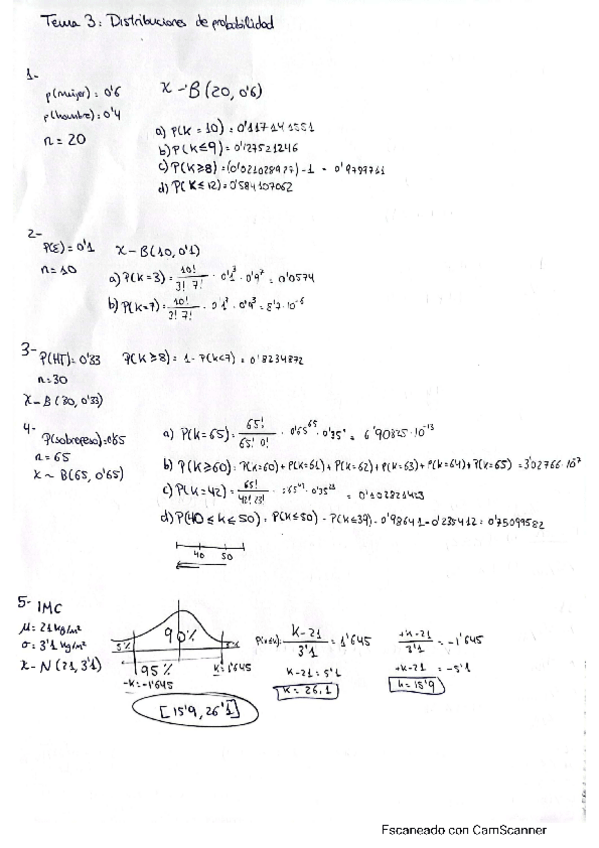 Tema 3: Distribuciones de probabilidad
1-
p(mujer): 0'6
p(hombre): 0'4
n = 20
X - B(20, 0'6)
a) P(K = 10) = 0'117141551
b) P(K ≤ 9) = 0'127521246
c) P(K ≥ 8) = (0'021028927) - 1 =
d) P(K ≤ 12) = 0'584107062
2-
P(E) = 0'1
n = 10
X - B(10, 0'1)
a) P(K = 3) = 10! / 3! 7! · 0'1³ · 0'9⁷ = 0'0574
b) P(K = 7) = 10! / 3! 7! · 0'1⁷ · 0'9³ = 8'7·10⁻⁶
3-
P(HT) = 0'33
n = 30
X - B(30, 0'33)
P(K ≥ 8) = 1 - P(K < 7) = 0'8234872
4-
P(sobrepeso) = 0'65
n = 65
X ~ B(65, 0'65)
a) P(K = 65) = 65! / 65! 0! · 0'65⁶⁵ · = 6'90825·10⁻¹³
b) P(K ≥ 60) = P(K=60) + P(K=61) + P(K=62) + P(K=63) + P(K=64) + P(K=65) = 3'02766·10
c) P(K = 42) = = 0'102821423
d) P(40 ≤ K ≤ 50) = P(K ≤ 50) - P(K ≤ 39) = 0'98641 - 0'235412 = 0'75099582
40 50
5- IMC
μ = 21 kg/m²
σ = 3'1 kg/m²
X - N(21, 3'1)
90%
5%
95%
-K = -1'645
K = 1'645
[15'9, 26'1]
K - 21 / 3'1 = 1'645
K - 21 = 5'1
K = 26.1
+K - 21 / 3'1 = -1'645
+K - 21 = -5'1
K = 15'9
Escaneado con CamScanner